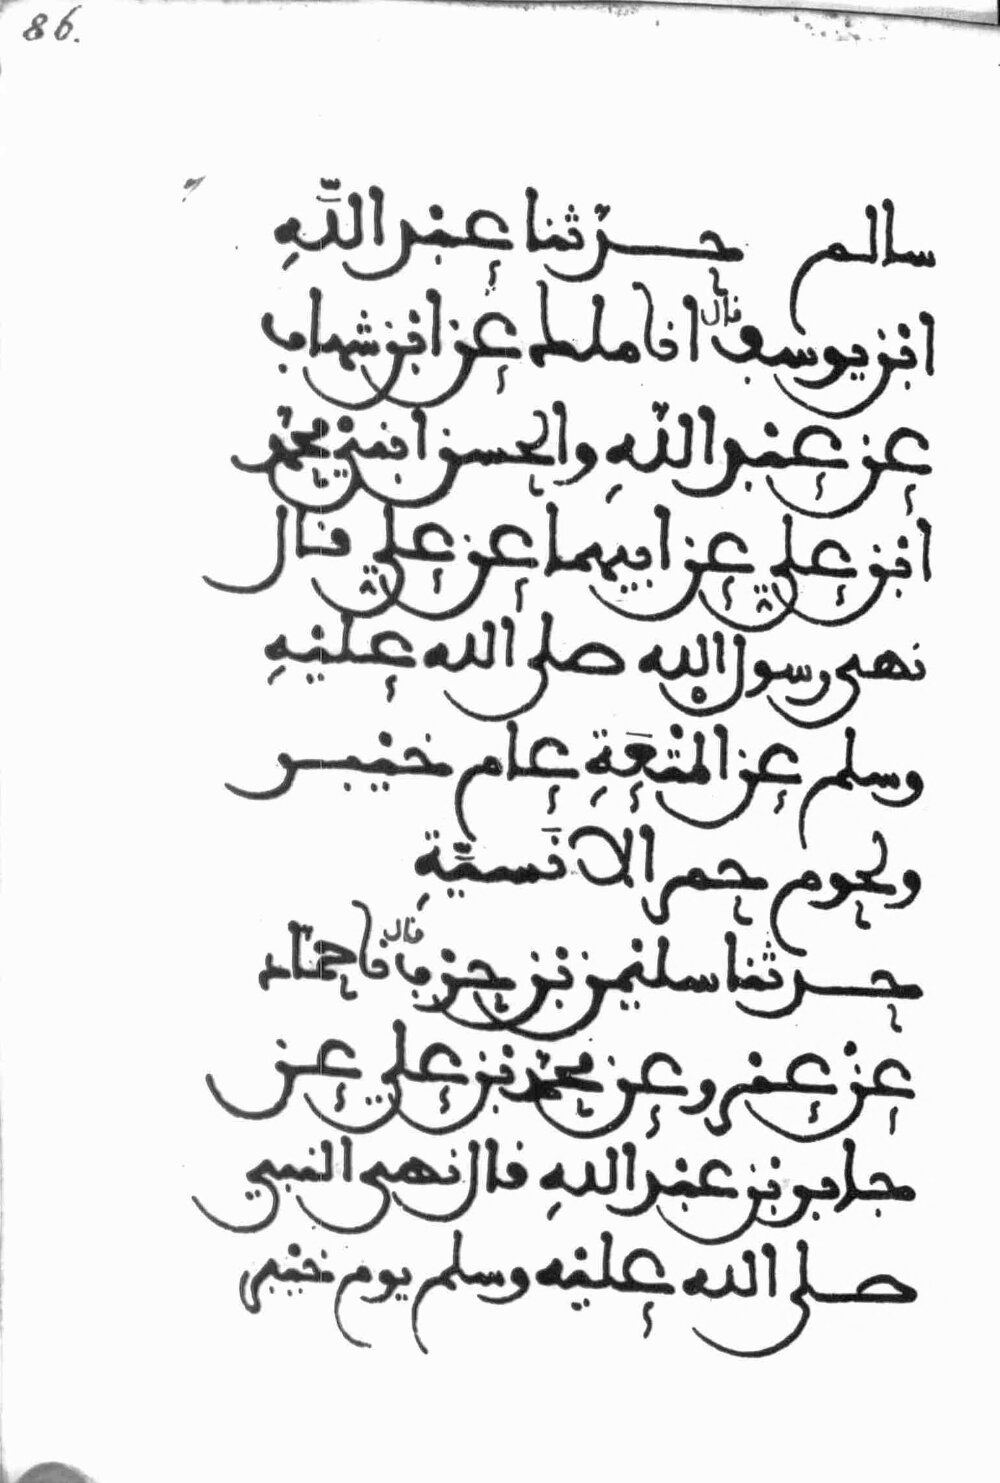 86.
سالم حدثنا عبد اللّه
ابن يوسف قال انا ملك عن ابن شهاب
عن عبد اللّه والحسن ابني محمد
ابن علي عن ابيهما عن علي قال
نهى رسول الله صلى الله عليه
وسلم عن المتعة عام خيبر
ولحوم حمر الانسيّة
حدثنا سليمن بن حرب قال نا حمّاد
عن عمرو عن محمد بن علي عن
جابر بن عبد الله قال نهى النبي
صلى الله عليه وسلم يوم خيبر